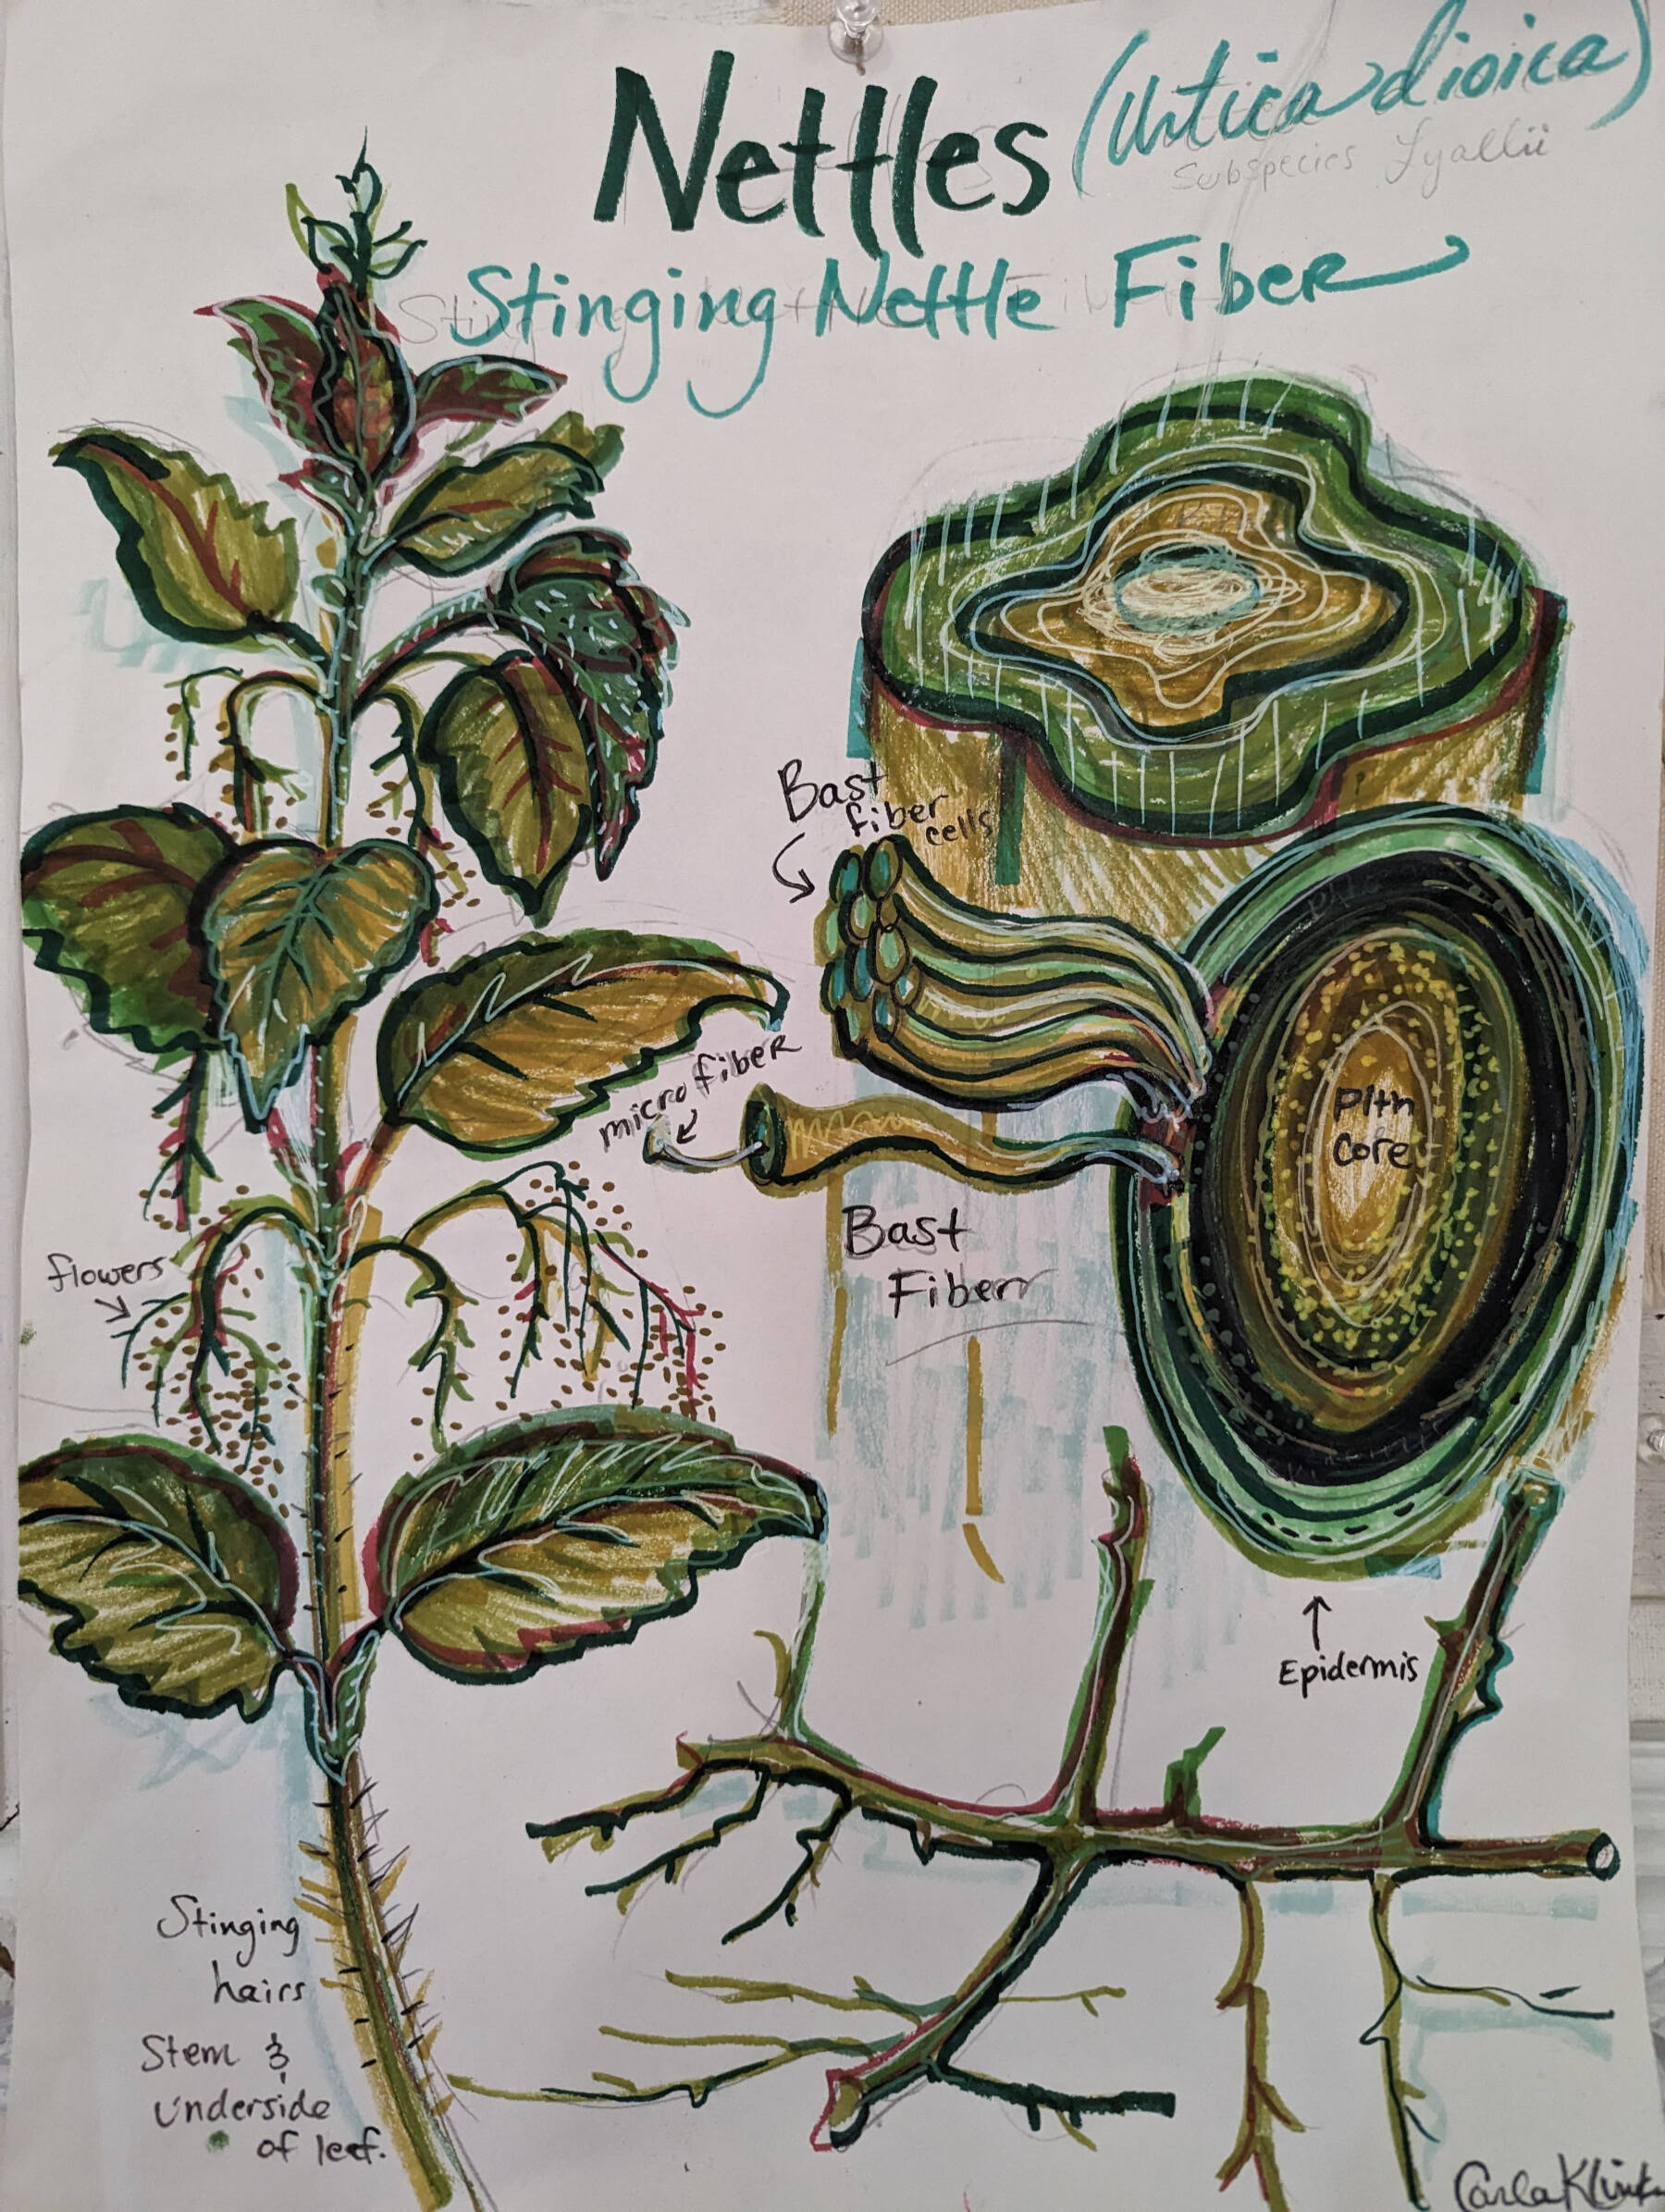 Nettles (Urtica dioica)
Subspecies Lyallii
Stinging Nettle Fiber
Bast
fiber
cells
micro fiber
Pith
Core
Bast
Fiber
flowers
Epidermis
Stinging
hairs
Stem &
underside
of leaf.
Carla